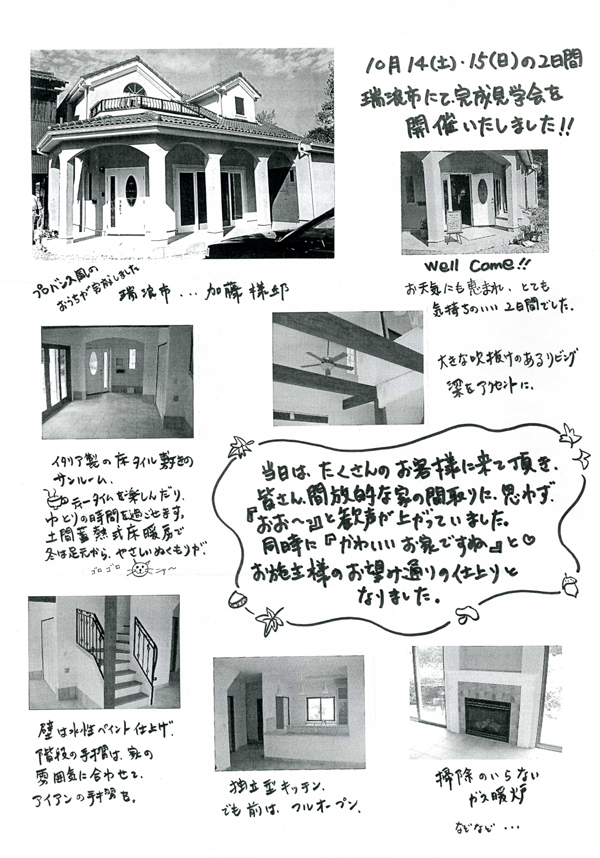 10月14(土)・15(日)の2日間
瑞浪市にて完成見学会を
開催いたしました!!
プロバンス風の
おうちが完成しました
瑞浪市...加藤様邸
Well Come!!
お天気にも恵まれ、とても
気持ちのいい2日間でした。
大きな吹抜けのあるリビング
梁をアクセントに、
イタリア製の床タイル敷きの
サンルーム、
ティータイムを楽しんだり、
ゆとりの時間を過ごせます。
土間蓄熱式床暖房で
冬は足元から、やさしいぬくもりが、
ゴロゴロ
ニャ〜
当日は、たくさんのお客様に来て頂き、
皆さん、開放的な家の間取りに、思わず、
『おお〜』と歓声が上がっていました。
同時に『かわいいお家ですね。』と♡
お施主様のお望み通りの仕上りと
なりました。
壁は水性ペイント仕上げ。
階段の手摺は、家の
雰囲気に合わせて、
アイアンの手摺を。
独立型キッチン、
でも前は、フルオープン。
掃除のいらない
ガス暖炉
などなど・・・